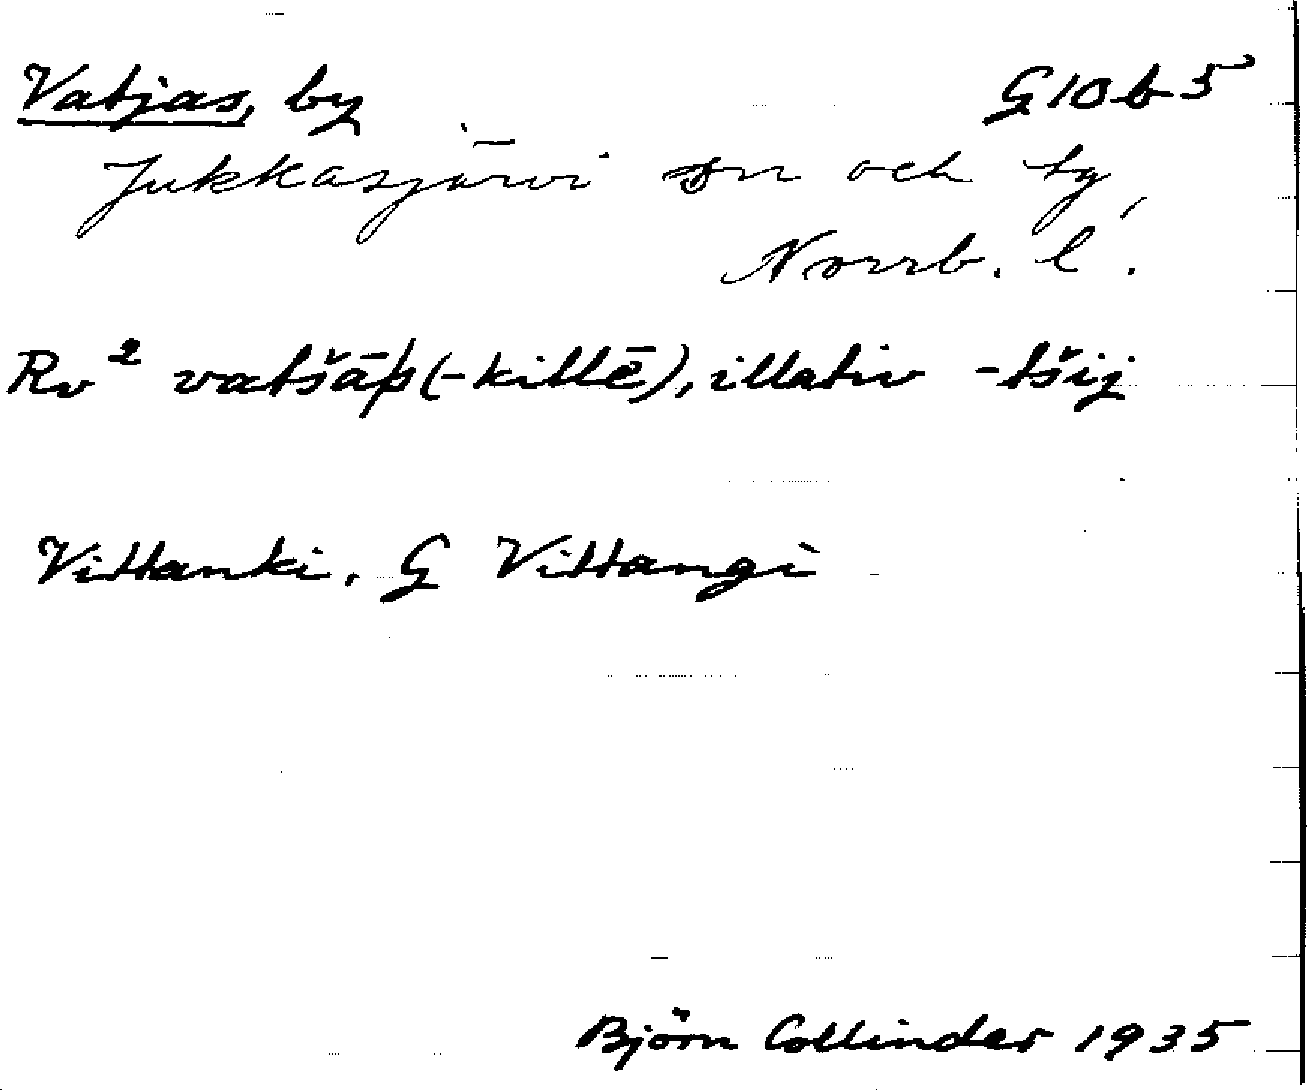 Vatjas, by G10b5
Jukkasjärvi sn och tg,
Norrb. l.
Rv² vatšāp̸(-kittē), illativ -tšij
Vittanki. G Vittangi
Björn Collinder 1935